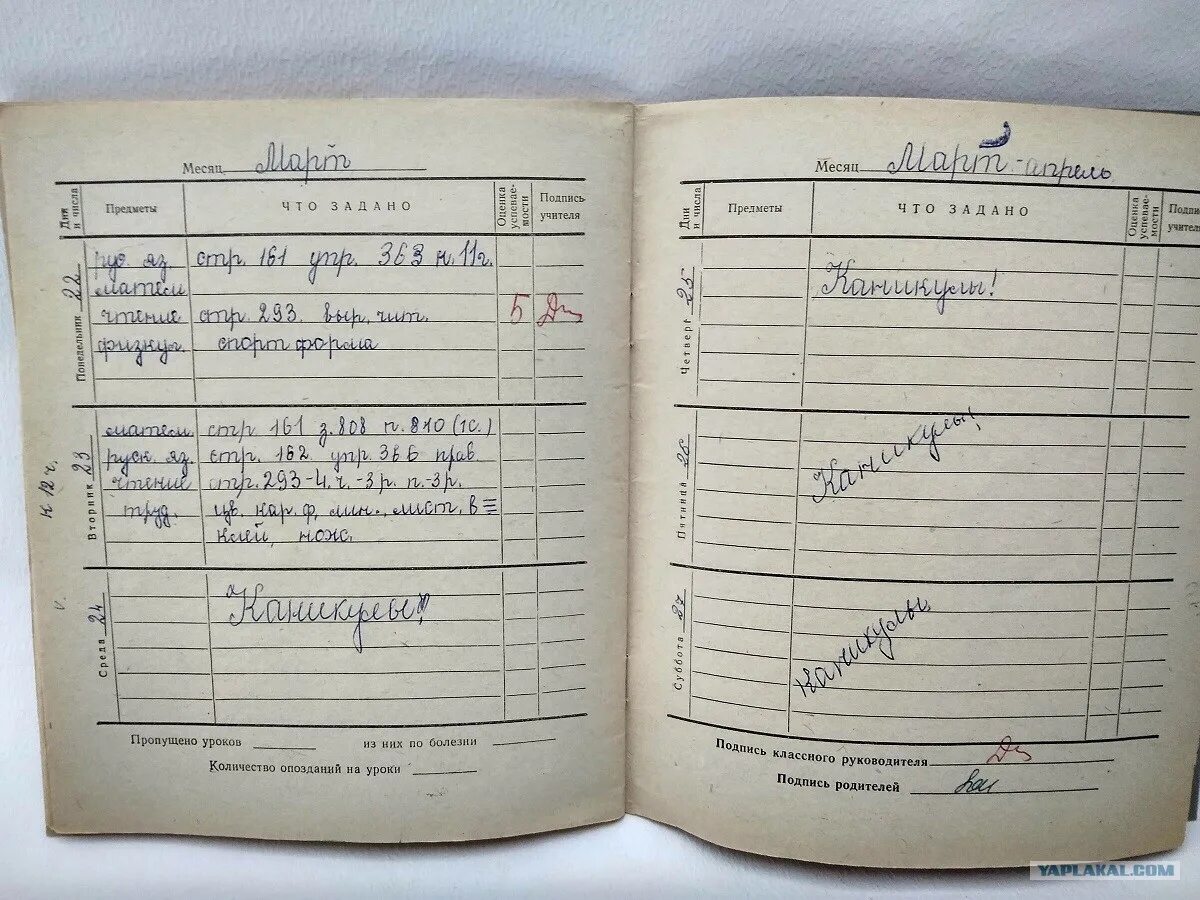 Месяц Март
Дни и числа
Предметы
ЧТО ЗАДАНО
Оценка успеваемости
Подпись учителя
Понедельник 22
рус. яз. стр. 161 упр. 363 к. 11 г.
матем
чтение стр. 293. выр. чит. 5
физкул. спорт форма
К 12 ч.
Вторник 23
матем. стр 161 з. 808 п. 810 (1с.)
руск. яз. стр. 162 упр. 366 прав.
чтение стр. 293-4. ч. -3 р. п. -3 р.
труд. цв. кар. ф, лин., лист. в
клей, нож.
Среда 24
Каникулы!
Пропущено уроков
из них по болезни
Количество опозданий на уроки
Месяц Март - апрель
Дни и числа
Предметы
ЧТО ЗАДАНО
Оценка успеваемости
Подпись учителя
Четверг 25
Каникулы!
Пятница 26
Каникулы!
Суббота 27
Каникулы.
Подпись классного руководителя
Подпись родителей
YAPLAKAL.COM